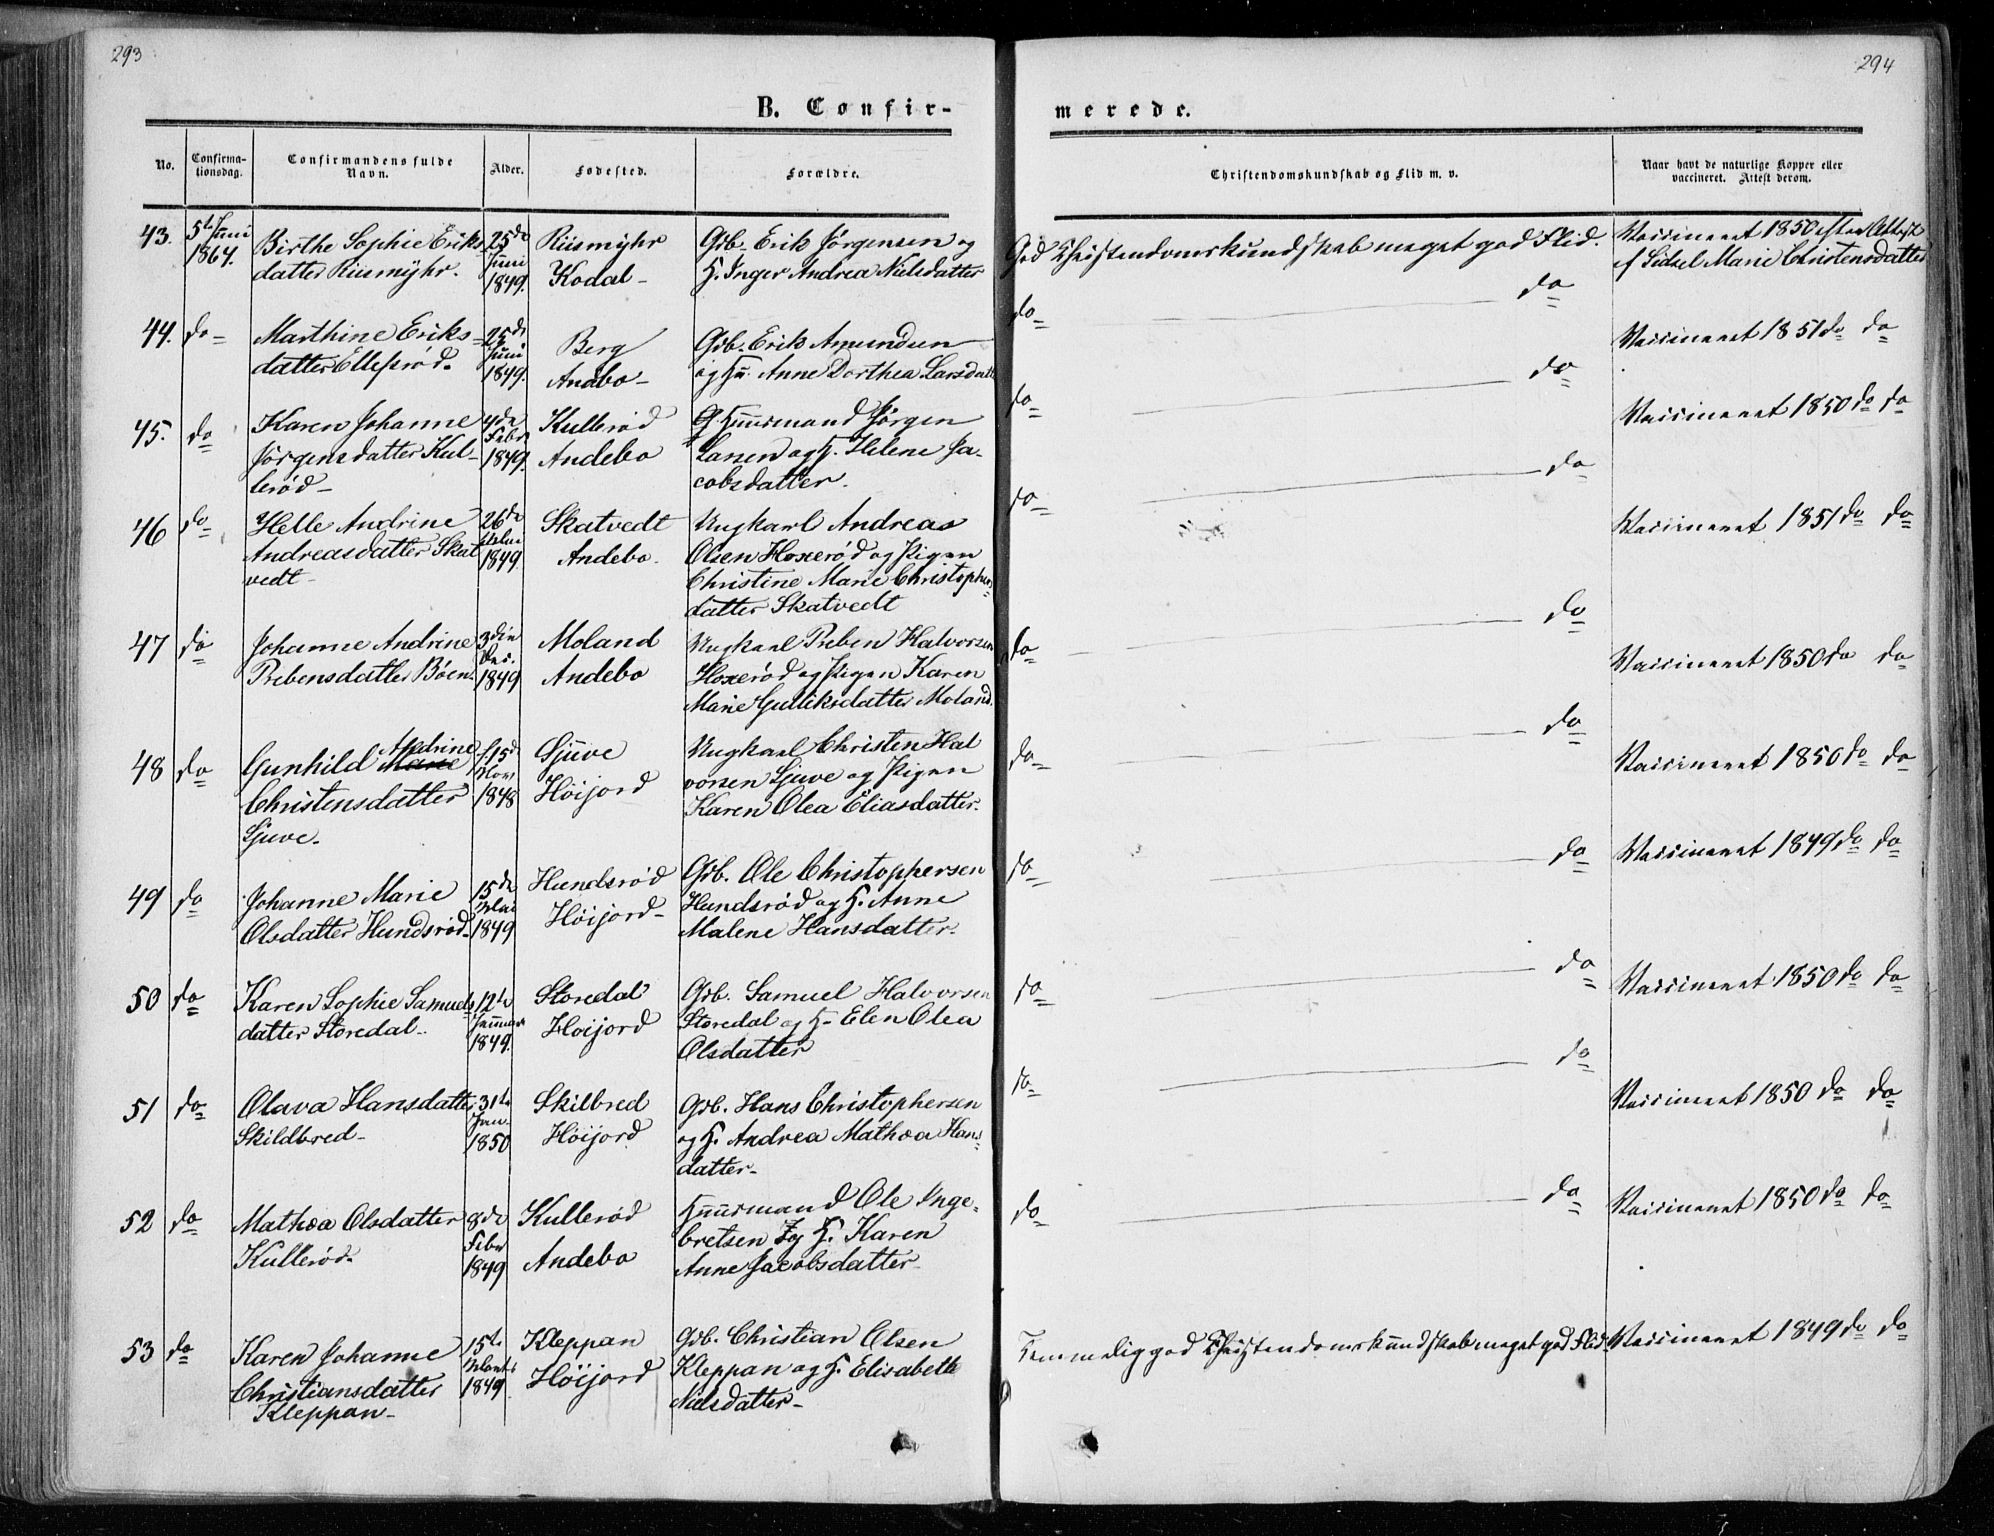 293
294
B. Confir-
merede.
No.
Confirma-
tionsdag.
Confirmandens fulde
Navn.
Alder.
Fødested.
Forældre.
Christendomskundskab og Flid m. v.
Naar havt de naturlige Kopper eller
vaccineret. Attest derom.
43.
5te Juni
1864.
Birthe Sophie Eriks
datter Riismyhr.
25de
Juni
1849.
Riismyhr
Kodal-
Gdb. Erik Jørgensen og
H. Inger Andrea Nielsdatter
God Christendomskundskab meget god Flid.
Vaccineret 1850 efter Attest
af Sidsel Marie Christensdatter
44.
do
Marthine Eriks-
datter Ellefsrød.
25de
Juni
1849.
Berg
Andebo-
Gdb. Erik Amundsen
og Hu. Anne Dorthea Larsdatt
do
do
Vaccineret 1851 do do
45.
do
Karen Johanne
Jørgensdatter Kul-
lerød-
4de
Febr
1849.
Kullerød
Andebo
Huusmand Jørgen
Larsen og H. Helene Ja-
cobsdatter.
do
do
Vaccineret 1850 do do
46
do
Helle Andrine
Andreasdatter Skat
vedt-
26de
1849
Skatvedt
Andebo.
Ungkarl Andreas
Olsen Hoxerød og Pigen
Christine Marie Christophers-
datter Skatvedt
do
do
Vaccineret 1851 do do
47
do
Johanne Andrine
Prebensdatter Bøen.
3die
Dec.
1849
Moland
Andebo
Ungkarl Preben Halvorsen
Hoxerød og Pigen Karen
Marie Gulliksdatter Moland.
do
do
Vaccineret 1850 do do
48
do
Andrine
Gunhild Marie
Christensdatter
Sjuve.
15de
Nov
1848
Sjuve
Høijord
Ungkarl Christen Hal
vorsen Sjuve og Pigen
Karen Olea Eliasdatter.
do
do
Vaccineret 1850 do do
49
do
Johanne Marie
Olsdatter Hundsrød.
15de
1849
Hundsrød
Høijord-
Gdb. Ole Christophersen
Hundsrød og H. Anne
Malene Hansdatter.
do
do
Vaccineret 1849 do do
50
do
Karen Sophie Samuels
datter Storedal.
12te
Januar
1849.
Storedal
Høijord
Gdb. Samuel Halvorsen
Storedal og H. Elen Olea
Olsdatter
do
do
Vaccineret 1850 do do
51
do
Olava Hansdatter
Skildbred-
31te
Jan
1850
Skilbred
Høijord
Gdb. Hans Christophersen
og H. Andrea Mathea Hans-
datter-
do
do
Vaccineret 1850 do do
52
do
Mathea Olsdatter
Kullerød.
8de
Febr
1849
Kullerød
Andebo
Huusmand Ole Inge-
bretsen og H. Karen
Anne Jacobsdatter
do
do
Vaccineret 1850 do do
53
do
Karen Johanne
Christiansdatter
Kleppan-
15te
Marts
1849
Kleppan
Høijord
Gdb. Christian Olsen
Kleppan og H. Elisabeth
Nielsdatter-
Temmelig god Christendomskundskab meget god Flid.
Vaccineret 1849 do do